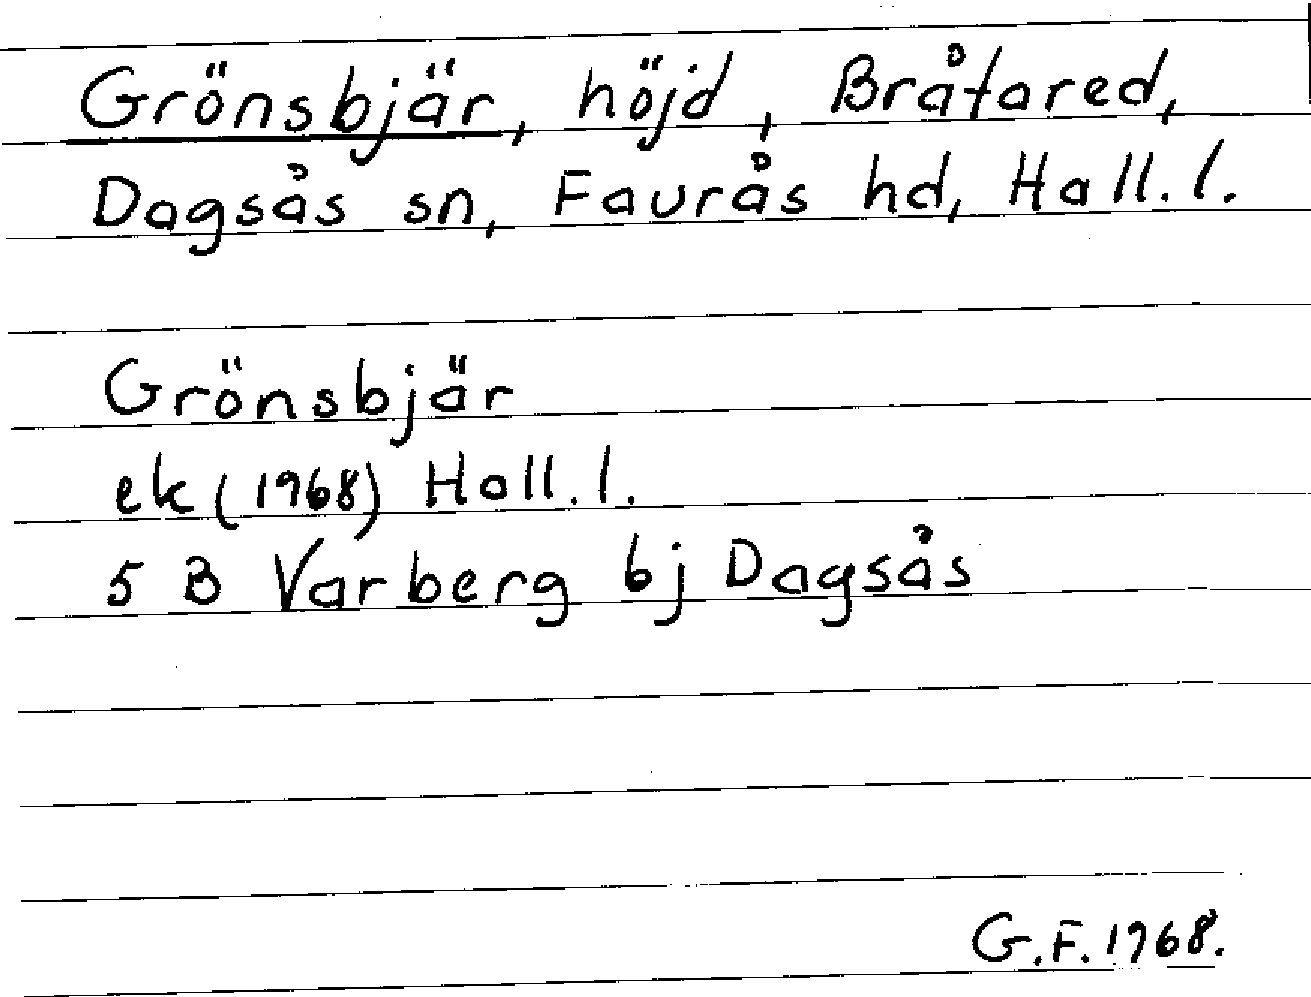 Grönsbjär, höjd, Bråtared,
Dagsås sn, Faurås hd, Hall. l.
Grönsbjär
ek (1968) Hall. l.
5 B Varberg bj Dagsås
G.F. 1968.